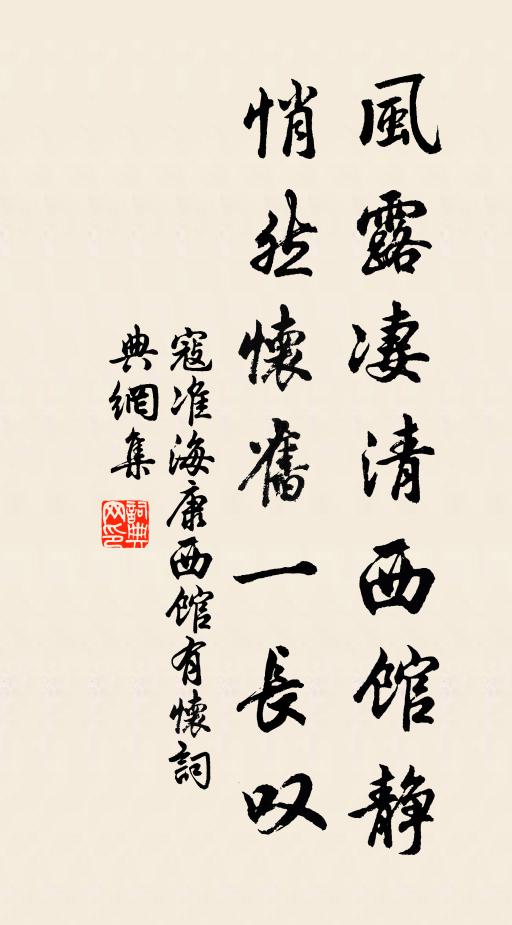 風露凄清西館静
悄然懷舊一長叹
寇准海康西館有懷詞
典網集
詞典
网印